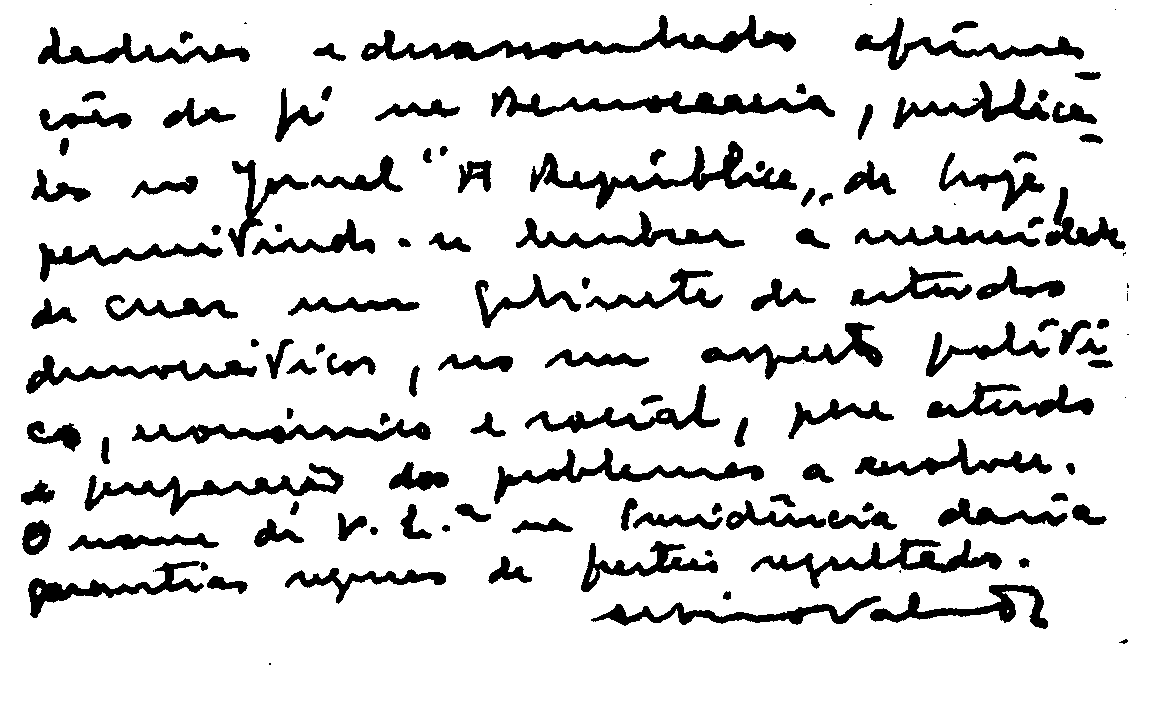 e desassombradas afirma-
ções de fé na Democracia, publica-
das no Jornal "A República„ de hoje,
permitindo-me lembrar a necessidade
de criar um gabinete de estudos
democráticos, no seu aspecto políti-
co, económico e social, para estudo
e preparação dos problemas a resolver.
O nome de V. E.ª na Presidência daria
garantias seguras de resultados.